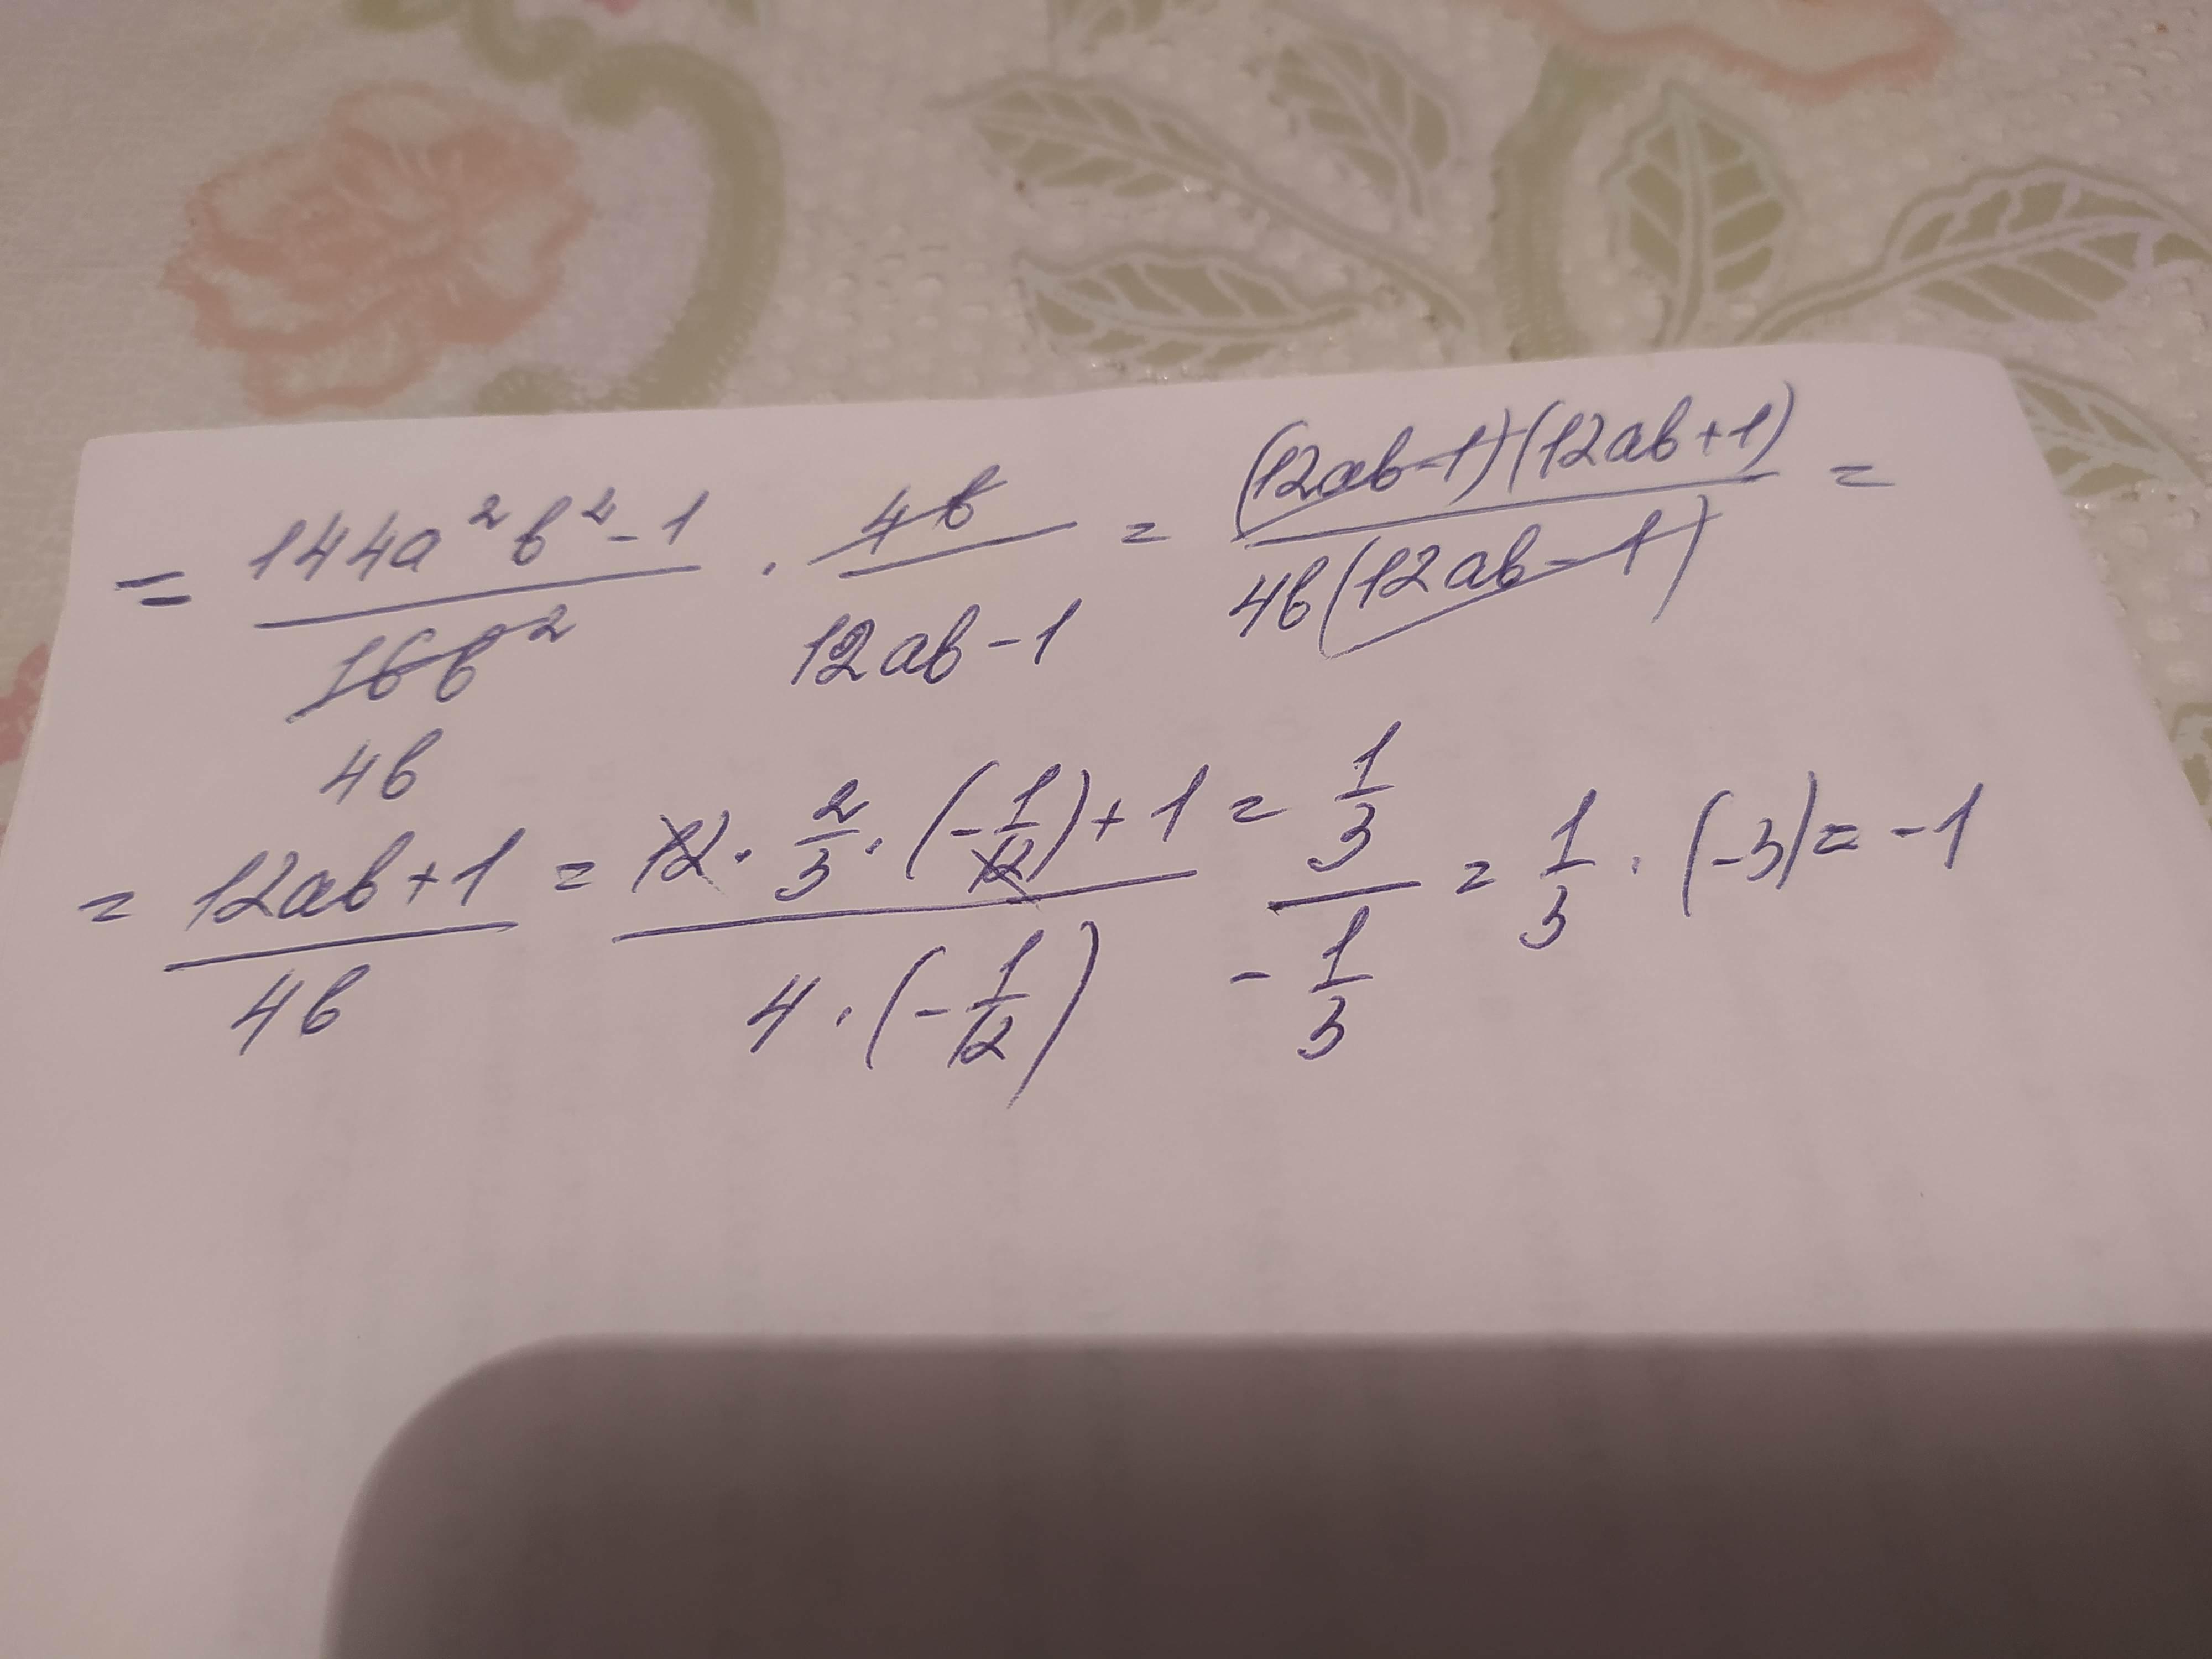 = 144a²b² - 1 / 16b² · 4b / 12ab - 1 = (12ab - 1)(12ab + 1) / 4b(12ab - 1) =
4b
= 12ab + 1 / 4b = 12 · 2/3 · (-1/12) + 1 / 4 · (-1/12) = 1/3 / -1/3 = 1/3 · (-3) = -1